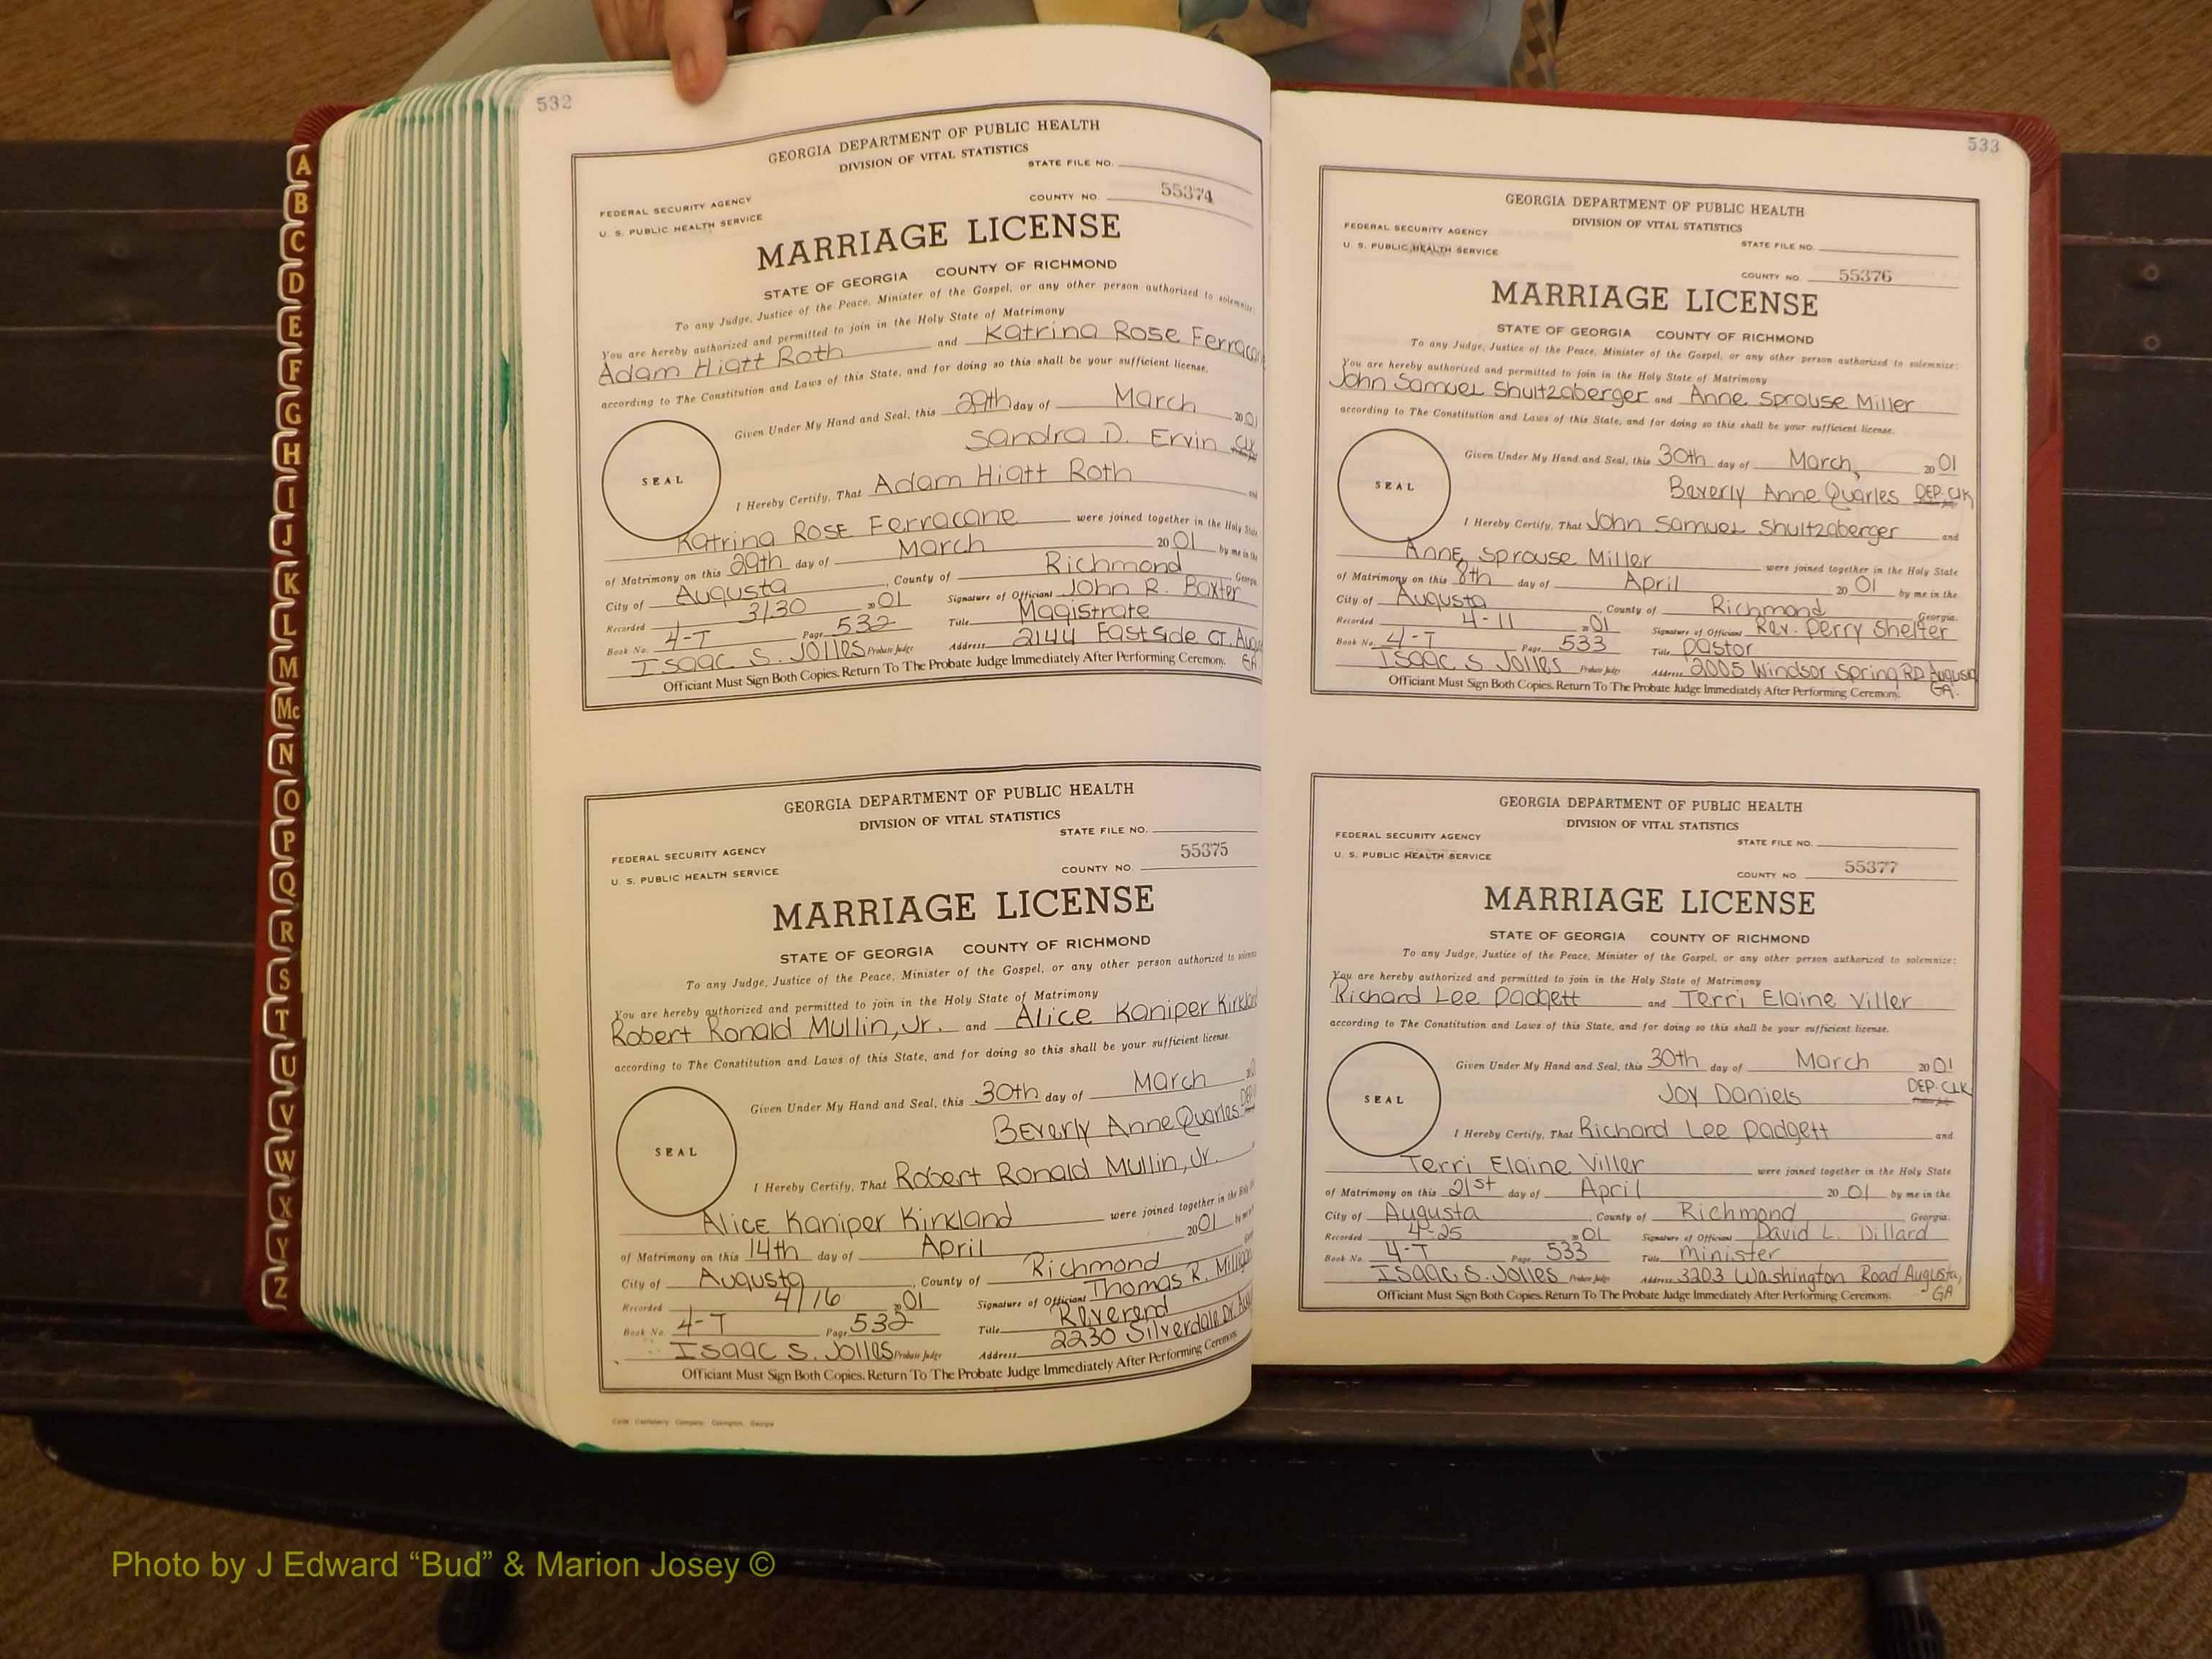 532
GEORGIA DEPARTMENT OF PUBLIC HEALTH
DIVISION OF VITAL STATISTICS
STATE FILE NO.
FEDERAL SECURITY AGENCY
U. S. PUBLIC HEALTH SERVICE
COUNTY NO. 55374
MARRIAGE LICENSE
STATE OF GEORGIA COUNTY OF RICHMOND
To any Judge, Justice of the Peace, Minister of the Gospel, or any other person authorized to solemnize:
You are hereby authorized and permitted to join in the Holy State of Matrimony
Adam Hiatt Roth and Katrina Rose
according to The Constitution and Laws of this State, and for doing so this shall be your sufficient license.
Given Under My Hand and Seal, this 29th day of March 2001
Sandra D. Ervin CLK
SEAL
I Hereby Certify, That Adam Hiatt Roth and
Katrina Rose Ferracane were joined together in the Holy State
of Matrimony on this 29th day of March 2001 by me in the
City of Augusta, County of Richmond Georgia.
Recorded 3/30 2001 Signature of Officiant John R. Baxter
Book No. 4-T Page 532 Title Magistrate
Isaac S. Jolles Probate Judge Address 2144 Eastside CT.
GA
Officiant Must Sign Both Copies. Return To The Probate Judge Immediately After Performing Ceremony.
GEORGIA DEPARTMENT OF PUBLIC HEALTH
DIVISION OF VITAL STATISTICS
STATE FILE NO.
FEDERAL SECURITY AGENCY
U. S. PUBLIC HEALTH SERVICE
COUNTY NO. 55375
MARRIAGE LICENSE
STATE OF GEORGIA COUNTY OF RICHMOND
To any Judge, Justice of the Peace, Minister of the Gospel, or any other person authorized to
You are hereby authorized and permitted to join in the Holy State of Matrimony
Robert Ronald Mullin, Jr. and Alice Kaniper
according to The Constitution and Laws of this State, and for doing so this shall be your sufficient license.
Given Under My Hand and Seal, this 30th day of March
Beverly Anne Quarles
SEAL
I Hereby Certify, That Robert Ronald Mullin, Jr.
Alice Kaniper Kirkland were joined together in the Holy
of Matrimony on this 14th day of April 2001 by me
City of Augusta, County of Richmond
Recorded 4/16 2001 Signature of Officiant Thomas R.
Book No. 4-T Page 532 Title Reverend
Isaac S. Jolles Probate Judge Address 2230 Silverdale Dr.
Officiant Must Sign Both Copies. Return To The Probate Judge Immediately After Performing Ceremony.
533
GEORGIA DEPARTMENT OF PUBLIC HEALTH
DIVISION OF VITAL STATISTICS
FEDERAL SECURITY AGENCY
U. S. PUBLIC HEALTH SERVICE
STATE FILE NO.
COUNTY NO. 55376
MARRIAGE LICENSE
STATE OF GEORGIA COUNTY OF RICHMOND
To any Judge, Justice of the Peace, Minister of the Gospel, or any other person authorized to solemnize:
You are hereby authorized and permitted to join in the Holy State of Matrimony
John Samuel Shultzaberger and Anne Sprouse Miller
according to The Constitution and Laws of this State, and for doing so this shall be your sufficient license.
Given Under My Hand and Seal, this 30th day of March, 2001
Beverly Anne Quarles DEP. CLK
SEAL
I Hereby Certify, That John Samuel Shultzaberger and
Anne Sprouse Miller were joined together in the Holy State
of Matrimony on this 8th day of April 2001 by me in the
City of Augusta, County of Richmond Georgia.
Recorded 4-11 2001 Signature of Officiant Rev. Perry Shelter
Book No. 4-T Page 533 Title Pastor
Isaac S. Jolles Probate Judge Address 2005 Windsor Spring RD Augusta
GA.
Officiant Must Sign Both Copies. Return To The Probate Judge Immediately After Performing Ceremony.
GEORGIA DEPARTMENT OF PUBLIC HEALTH
DIVISION OF VITAL STATISTICS
FEDERAL SECURITY AGENCY
U. S. PUBLIC HEALTH SERVICE
STATE FILE NO.
COUNTY NO. 55377
MARRIAGE LICENSE
STATE OF GEORGIA COUNTY OF RICHMOND
To any Judge, Justice of the Peace, Minister of the Gospel, or any other person authorized to solemnize:
You are hereby authorized and permitted to join in the Holy State of Matrimony
Richard Lee Padgett and Terri Elaine Viller
according to The Constitution and Laws of this State, and for doing so this shall be your sufficient license.
Given Under My Hand and Seal, this 30th day of March 2001
Joy Daniels DEP. CLK
SEAL
I Hereby Certify, That Richard Lee Padgett and
Terri Elaine Viller were joined together in the Holy State
of Matrimony on this 21st day of April 2001 by me in the
City of Augusta, County of Richmond Georgia.
Recorded 4-25 2001 Signature of Officiant David L. Dillard
Book No. 4-T Page 533 Title Minister
Isaac S. Jolles Probate Judge Address 3203 Washington Road Augusta,
GA
Officiant Must Sign Both Copies. Return To The Probate Judge Immediately After Performing Ceremony.
A
B
C
D
E
F
G
H
I
J
K
L
M
Mc
N
O
P
Q
R
S
T
U
V
W
X
Y
Z
Photo by J Edward “Bud” & Marion Josey ©